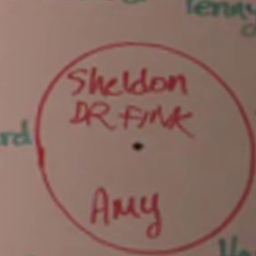 Penny
Sheldon
DR FINK
rd
Amy